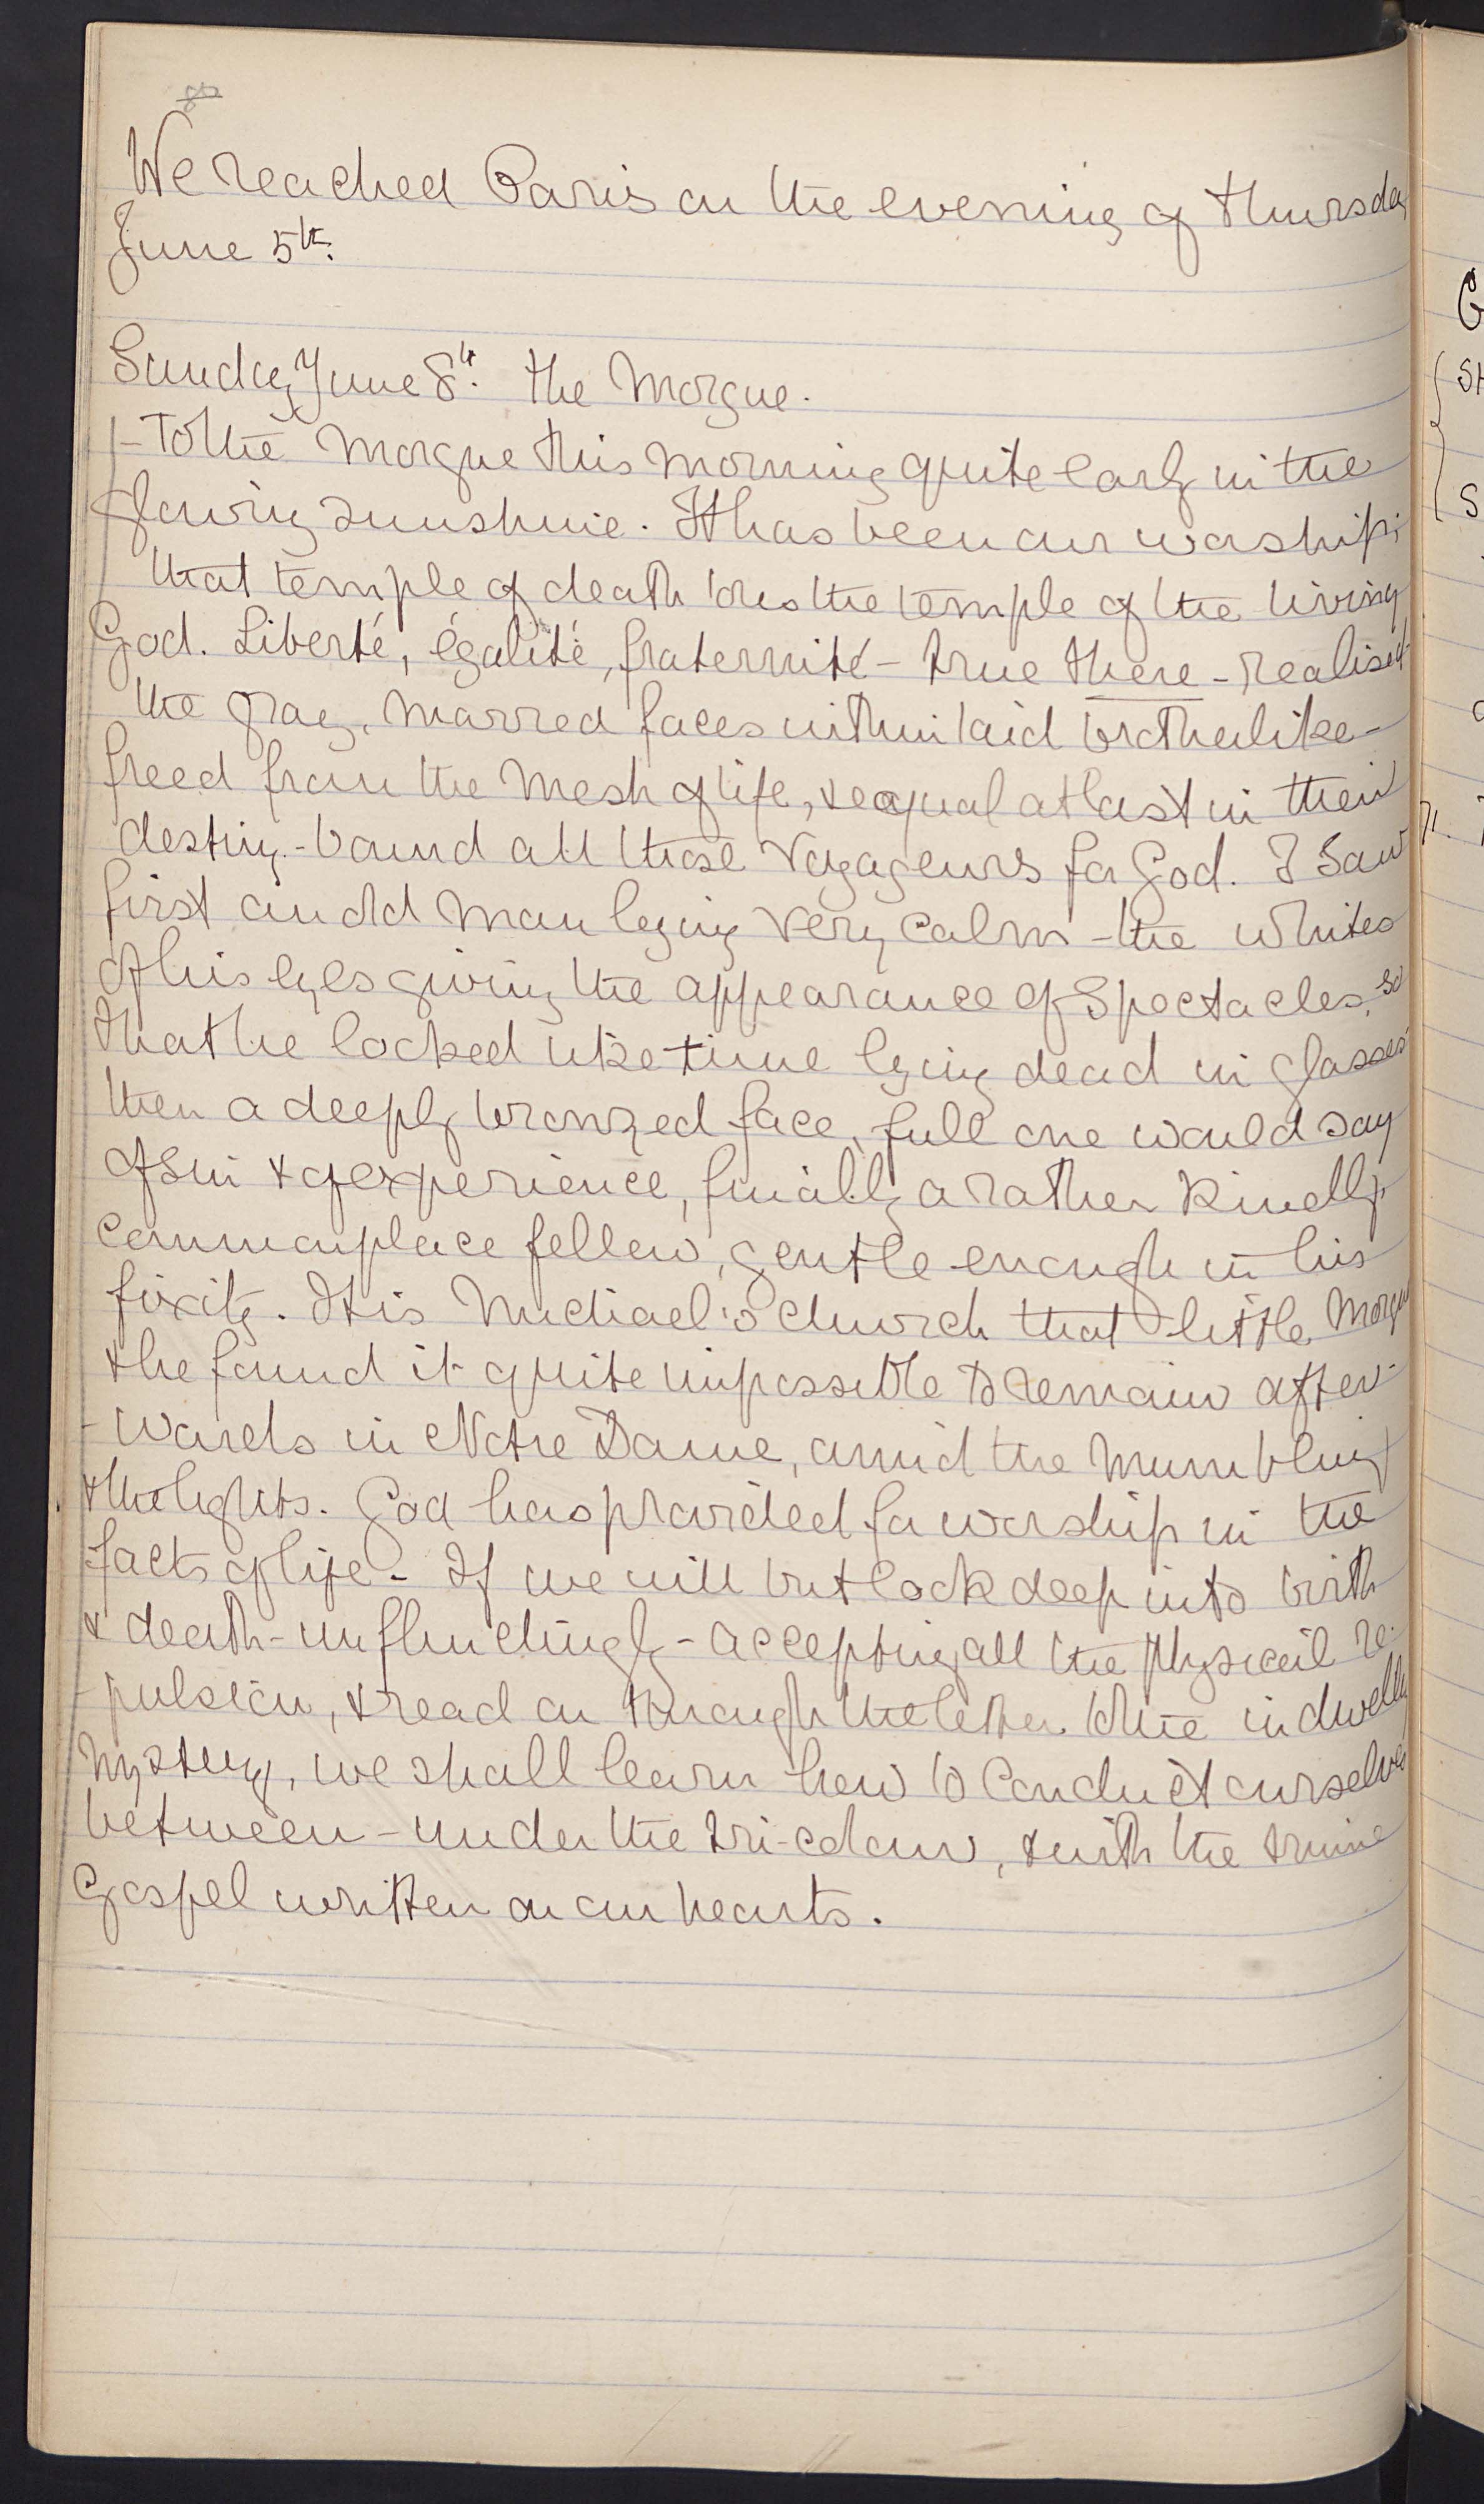 We reached Paris on the evening of Thursday
June 5th.
Sunday June 8th. The Morgue.
- To the Morgue this morning quite early in the
glowing sunshine. It has been our worship;
that temple of death to us the temple of the living
God. Liberté, égalité, fraternité - true there - realised
the gray, marred faces within laid brotherlike -
freed from the mesh of life, & equal at last in their
destiny - bound all those voyageurs for God. I saw
first an old man lying very calm - the whites
of his eyes giving the appearance of spectacles, so
that he looked like time lying dead in glasses
then a deeply bronzed face, full one would say
of sin & of experience, finally a rather kindly,
commonplace fellow, gentle enough in his
fixity. It is Michael's church that little Morgue
& he found it quite impossible to remain after-
- wards in Notre Dame, amid the mumbling
& the lights. God has provided for worship in the
facts of life - If we will but look deep into birth
& death - unflinchingly - accepting all the physical re-
- pulsion, & read on through the letter to the indwelling
mystery, we shall learn how to conduct ourselves
between - under the tri-colour, & with the triune
Gospel written on our hearts.